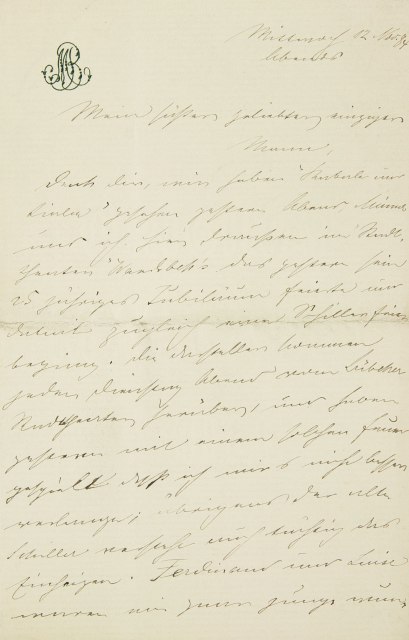 Mittwoch 12. Nov. 94
Abends
Mein süßer geliebter einziger
Mann,
Denk dir, wir haben "Kabale und
Liebe" gesehen gestern Abend,
und ich hier draußen im Stadt-
theater Wandsbek's das gestern sein
25 jähriges Jubiläum feierte und
damit zugleich eine Schillerfeier
beging. Die Darsteller kommen
jeden Dienstag Abend vom Lübecker
Stadttheater herüber, und haben
gestern mit einem solchen Feuer
gespielt daß ich mir's nicht besser
verlange; übrigens der alte
Schiller versteht auch tüchtig das
Einheizen. Ferdinand und Luise
waren ein paar junge